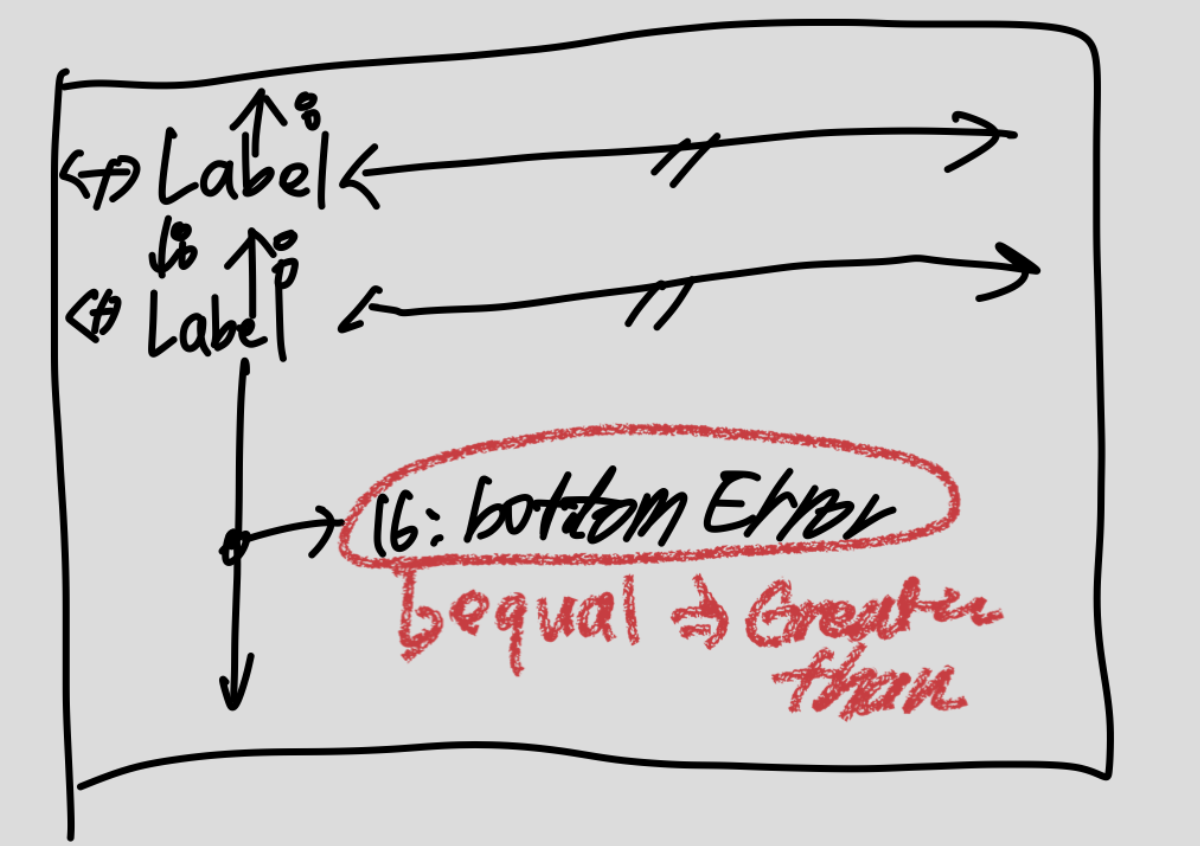 Label
Label
16: bottom Error
equal ⇒ Greater
than